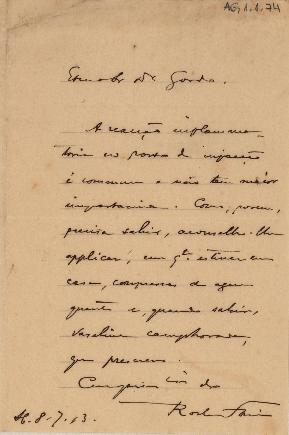 AG.1.1.74
Dr. Gordo.
A reacção inflamma-
toria no ponto da injecção
é commum e não tem maior
importancia. Como, porem,
precisa sahir, aconselho-lhe
applicar, em qto. estiver em
casa, compressas de agua
quente e, quando sahir,
vaselina camphorada,
que prescrevo.
8-7-13.